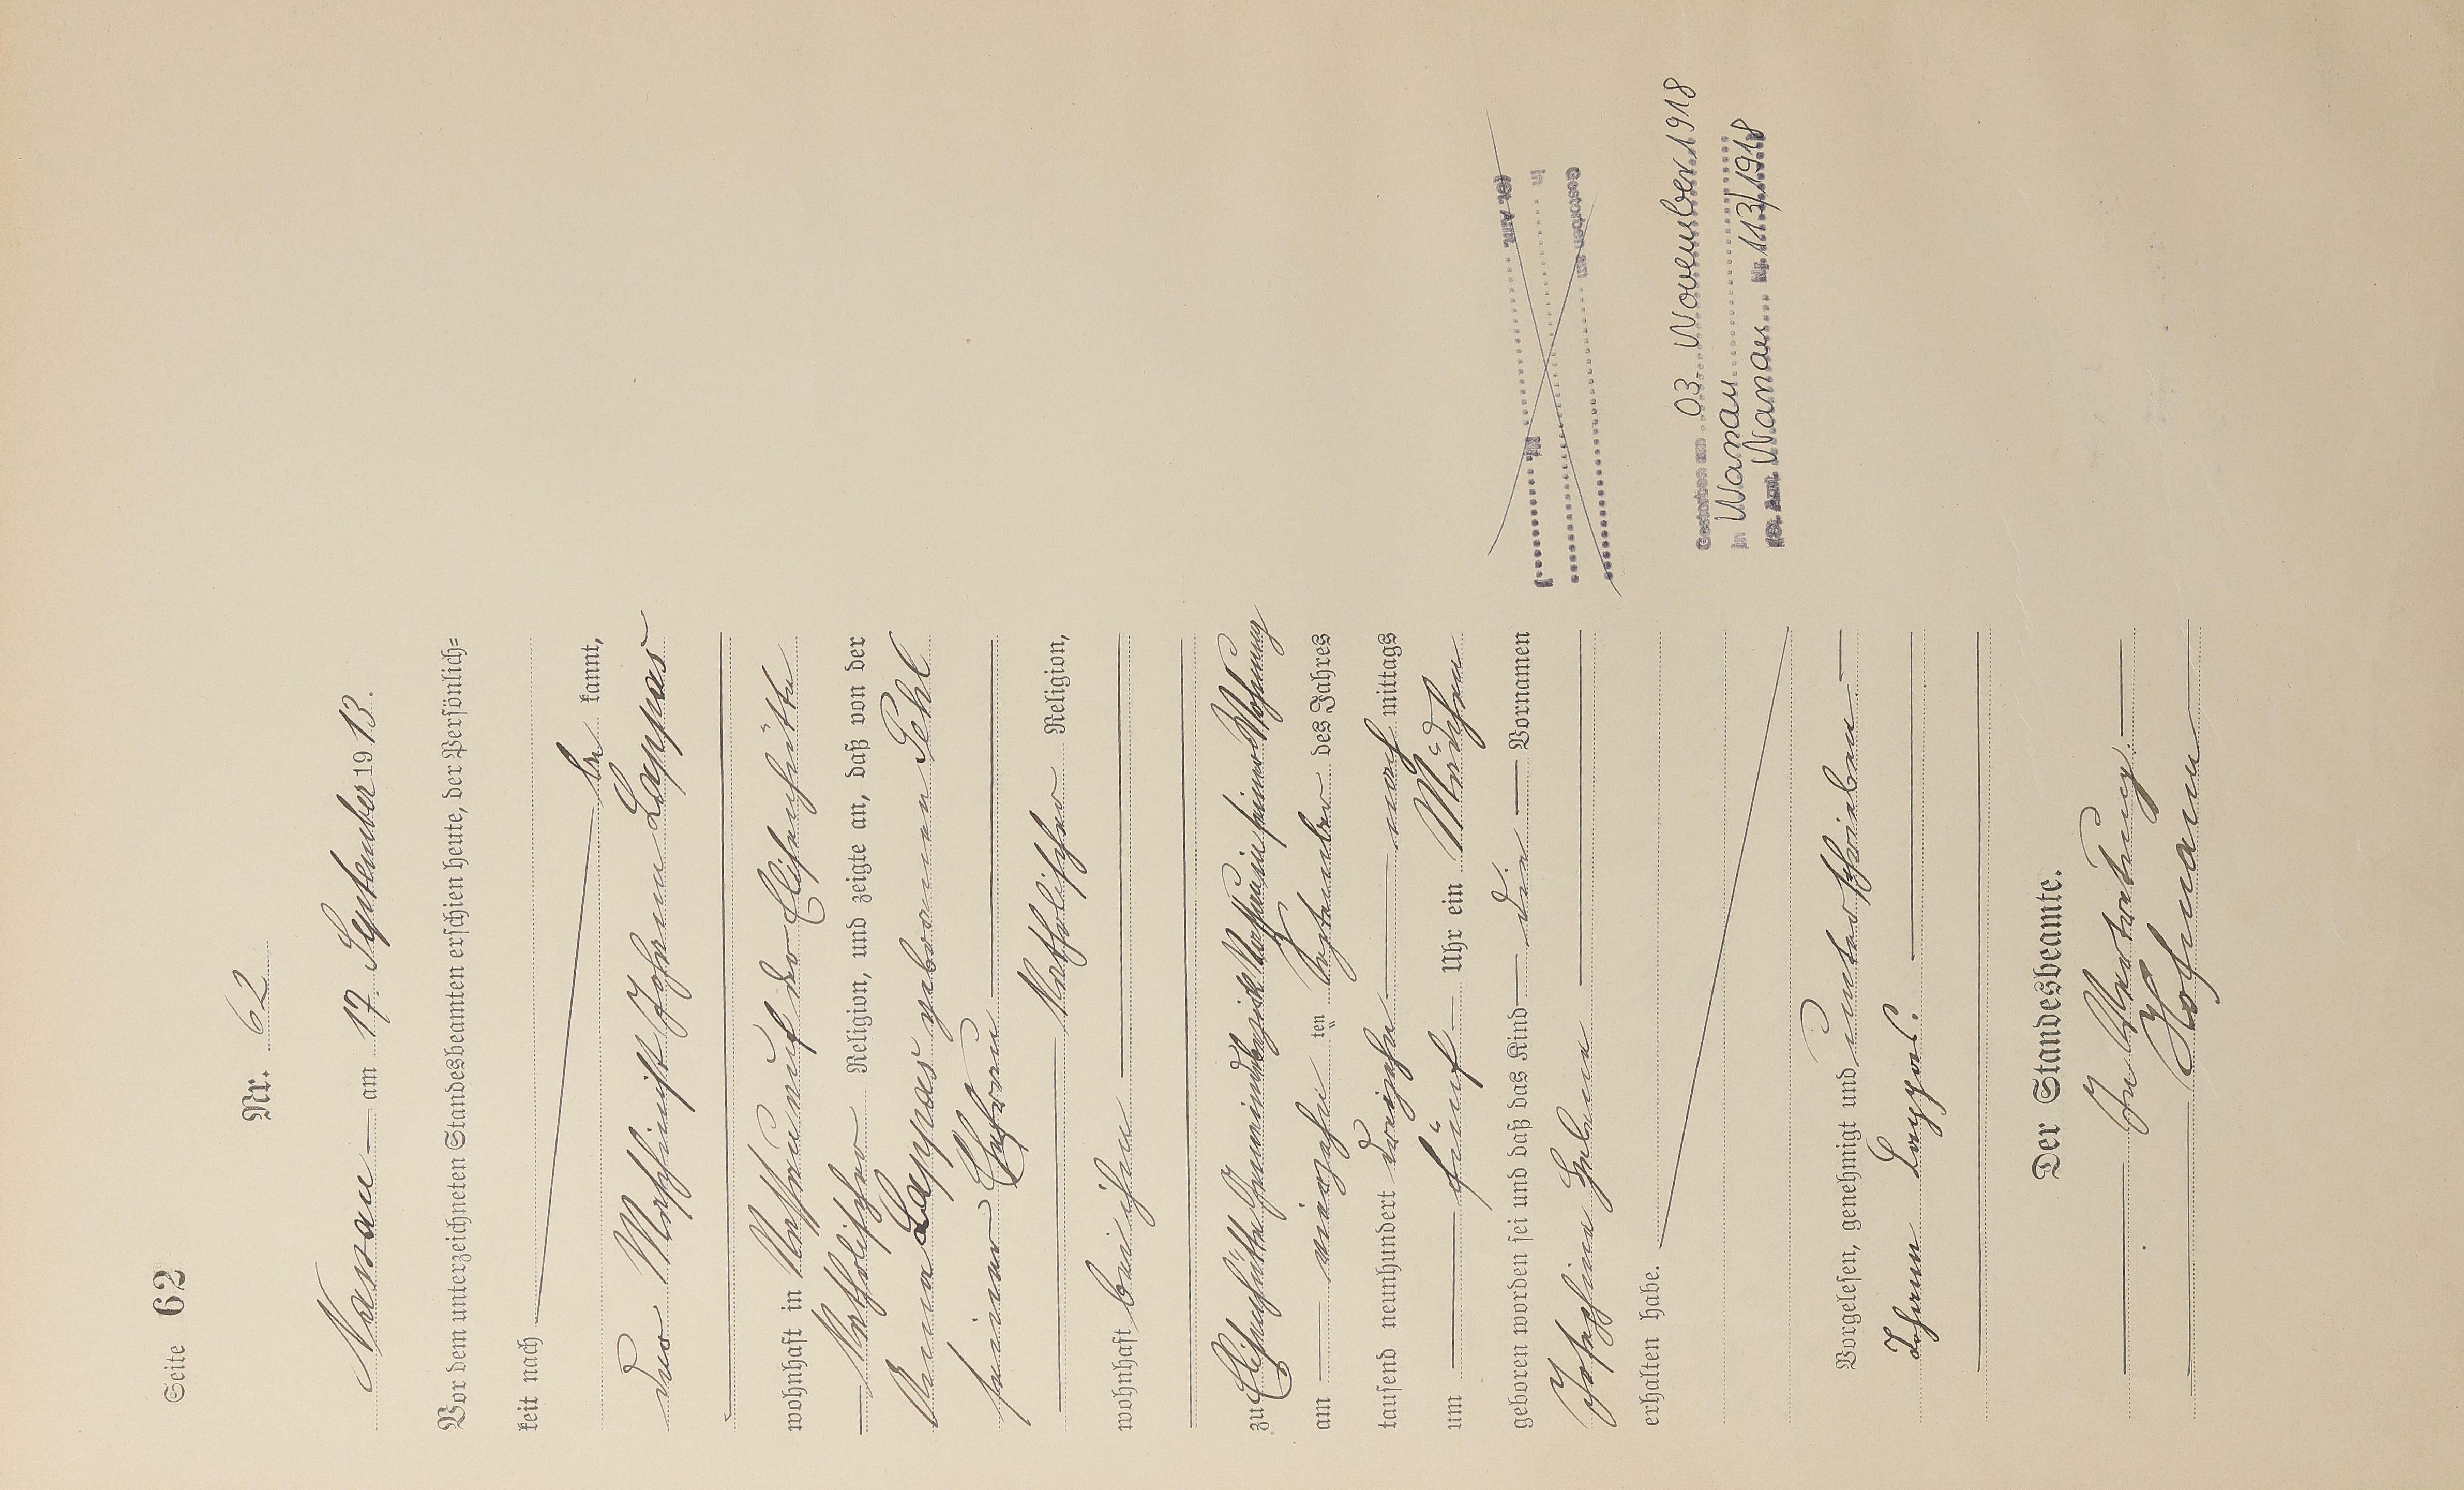 Seite 62
Nr. 62
Nassau — am 17. September 1913.
Vor dem unterzeichneten Standesbeamten erschien heute, der Persönlich=
keit nach
be kannt,
der Maschinist Johann Lappas
wohnhaft in Nassau auf der Elisenhütte
katholischer Religion, und zeigte an, daß von der
Anna Lappas geborenen Pehl
seiner Ehefrau
katholischer Religion,
wohnhaft bei ihm
zu Elisenhütte Gemeindebezirk Nassau in seiner Wohnung
am vierzehn ten September des Jahres
tausend neunhundert dreizehn nach mittags
um fünf Uhr ein Mädchen
geboren worden sei und daß das Kind die Vornamen
Josephina Helena
erhalten habe.
Vorgelesen, genehmigt und unterschrieben
Johann Lappas.
Der Standesbeamte.
In Vertretung.
Hofmann
Gestorben am
in
(St. Amt Nr. )
Gestorben am 03. November 1918
in Nassau
(St. Amt. Nassau Nr. 113/1918